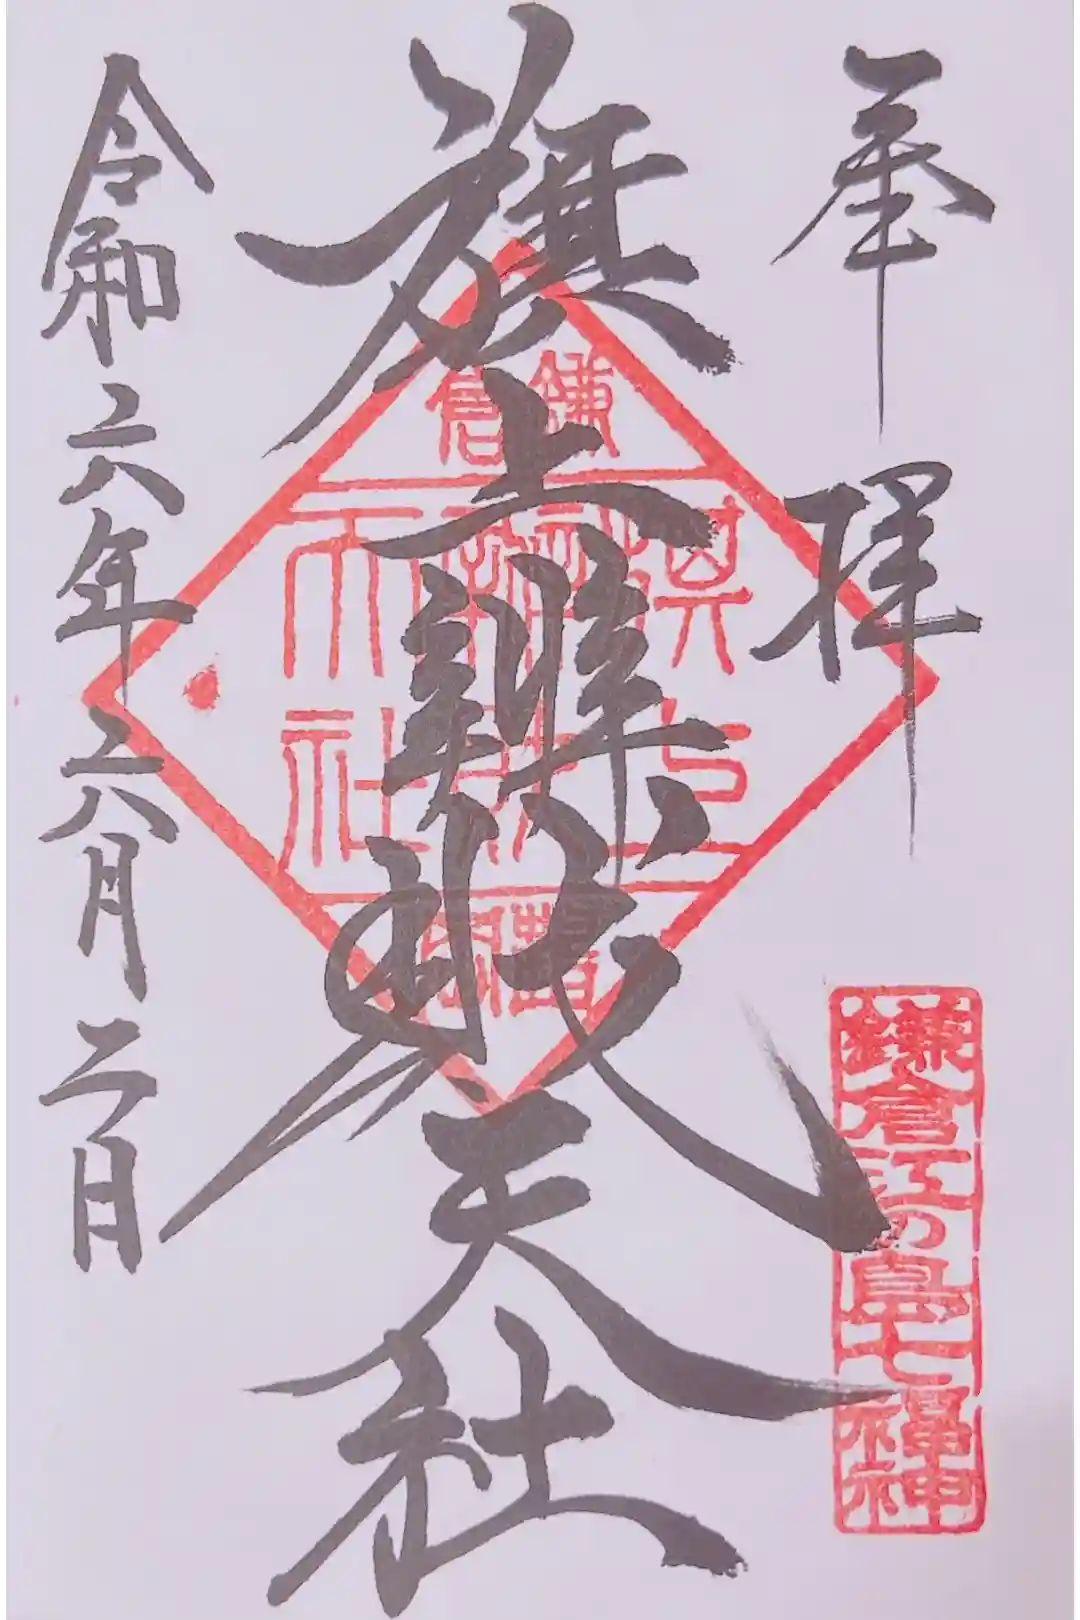 奉拝
鎌倉江の島七福神
旗上辨財天社
鎌倉
天社
令和六年六月二日